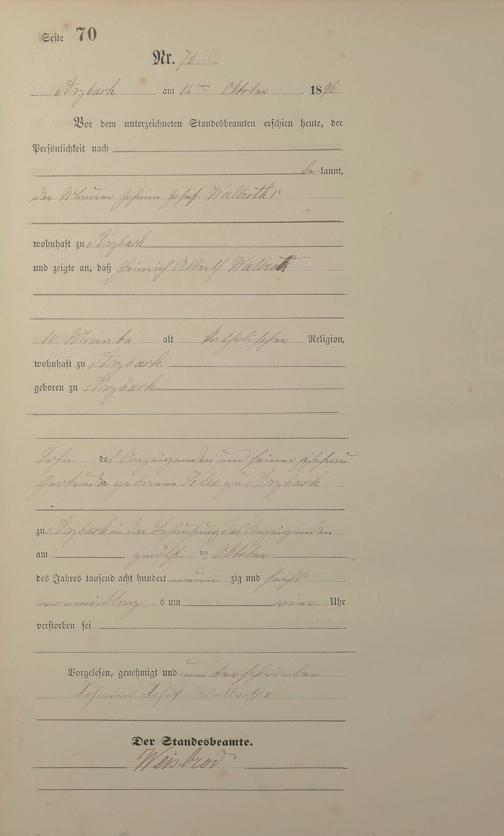 Seite 70
Nr. 70
Arzbach am 12ten Oktober 1896
Vor dem unterzeichneten Standesbeamten erschien heute, der
Persönlichkeit nach
be kannt,
der Maurer Johann Josef Wallroth
wohnhaft zu Arzbach
und zeigte an, daß Heinrich Albert Wallroth
10 Monate alt katholischer Religion,
wohnhaft zu Arzbach
geboren zu Arzbach
Sohn des Anzeigenden und seiner Ehefrau
geborene Klee zu Arzbach
zu Arzbach in der Behausung des Anzeigenden
am zwölf ten Oktober
des Jahres tausend acht hundert neun zig und sechs
vormittag s um vier Uhr
verstorben sei
Vorgelesen, genehmigt und unterschrieben
Johann Josef Wallroth
Der Standesbeamte.
Weisbrod